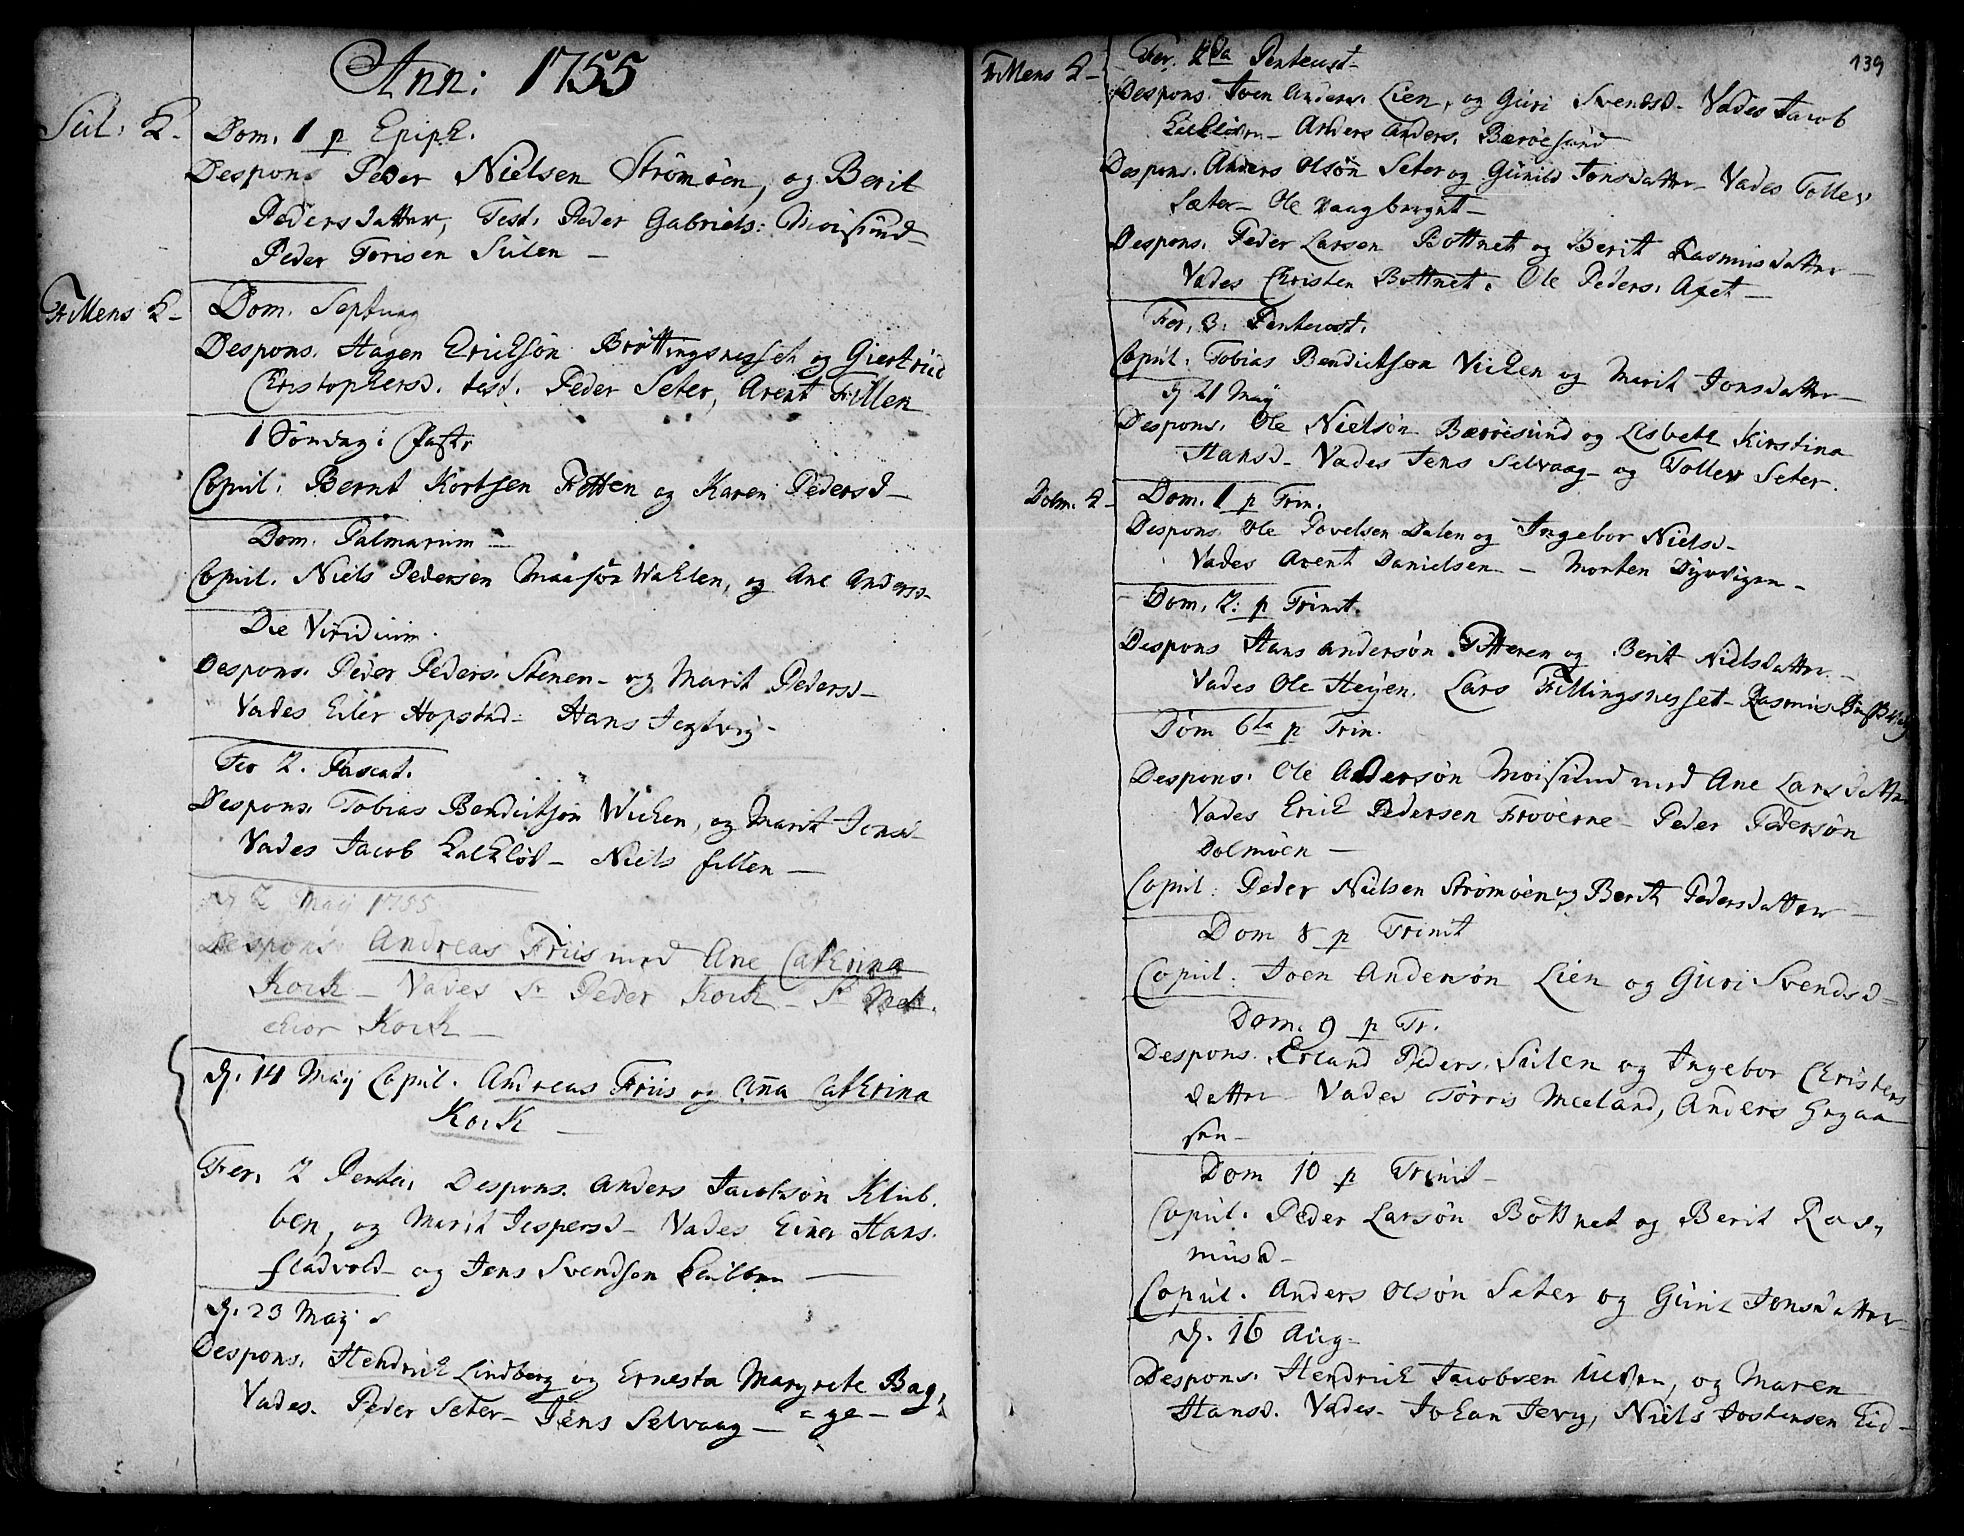 Ann: 1755
Sul: K.
Dom. 1 p Epiph.
Despons Peder Nielsen Strömöen, og Berit
Pedersdatter, Test. Peder Gabriels: Moisund
Peder Torisen Sulen –
Fillens K –
Dom. Septuag
Despons. Hagen Erichsön Bröttingsnesset og Giertrud
Christophersd. test. Peder Seter, Arent Fillen
1 Söndag i Faste
Copul. Bernt Kortsen Fitten og Karen Pedersd –
Dom. Palmarum –
Copul. Niels Pedersen Maasör Wahlen, og Ane Andersd –
Die Viridium.
Despons. Peder Peders. Stenen – og Marit Pedersd –
Vades Eiler Hopstad – Hans Jegtvig –
Fer 2. Pascat.
Despons. Tobias Bendictsön Wicken, og Marit Jonsd –
Vades Jacob Kalklöd – Niels fillen –
d. 2 Maij 1755
Despons. Andreas Friis med Ane Cathrina
Kock – Vades Sr Peder Kock – Sr Mel-
chior Kock –
d. 14 Maij Copul. Andreas Friis og Anna Cathrina
Kock –
Fer. 2 Pentec. Despons. Anders Jacobsön Klub
ben, og Marit Jespersd – Vades Einer Hans.
fladvold – og Jens Svendsen –
d. 23 Maij
Despons. Hendrich Lindberg og Ernesta Margrete Bag,
Vades. Peder Seter – Jens Selvaag – = ge –
139
Fillens K –
Fer. 2da Pentecost –
Despons. Joen Anders. Lien, og Guri Svendsd – Vades Jacob
Kalklöven – Anders Anders. Baröesund
Despons. Anders Olsön Seter og Gunild Jonsdatter – Vades Tollev
Sæter – Ole Vaagberget –
Despons. Peder Larsen Bottnet og Berit Rasmusdatter –
Vades Christen Bottnet. Ole Peders. Axet –
Fer. 3. Pentecost.
Copul. Tobias Bendictsen Vicken og Marit Jonsdatter –
d. 21 Maij
Despons. Ole Nielsön Baröesund og Lisbeth Kirstina
Hansd – Vades Jens Selvaag – og Tollev Seter.
Dolm. K –
Dom. 1 p Trin.
Despons Ole Povelsen Dalen og Ingebor Nielsd –
Vades Arent Danielsen – Morten Dyrvigen –
Dom. 2: p Trinit.
Despons Hans Andersön Fitteren og Berit Nielsdatter –
Vades Ole Heyen. Lars Fillingsnesset – Rasmus
Dom 6ta p Trin.
Despons. Ole Andersön Moisund med Ane Larsdatter
Vades Erich Pedersen Froöerne – Peder Pedersön
Dolmöen –
Copul. Peder Nielsen Strömöen og Berit Pedersdatter –
Dom 8 p Trinit
Copul. Joen Andersön Lien og Guri Svendsd –
Dom. 9 p Tr.
Despons. Erland Peders. Sulen og Ingebor Christens
datter Vades Törris Meeland, Anders
sen –
Dom 10 p Trinit –
Copul. Peder Larsön Bottnet og Berit Ras,
musd –
Copul. Anders Olsön Seter og Gunil Jonsdatter –
d. 16 Aug –
Despons. Hendrich Jacobsen, og Maren
Hansd. Vades. Johan Jevig, Niels Jostensen Eid –